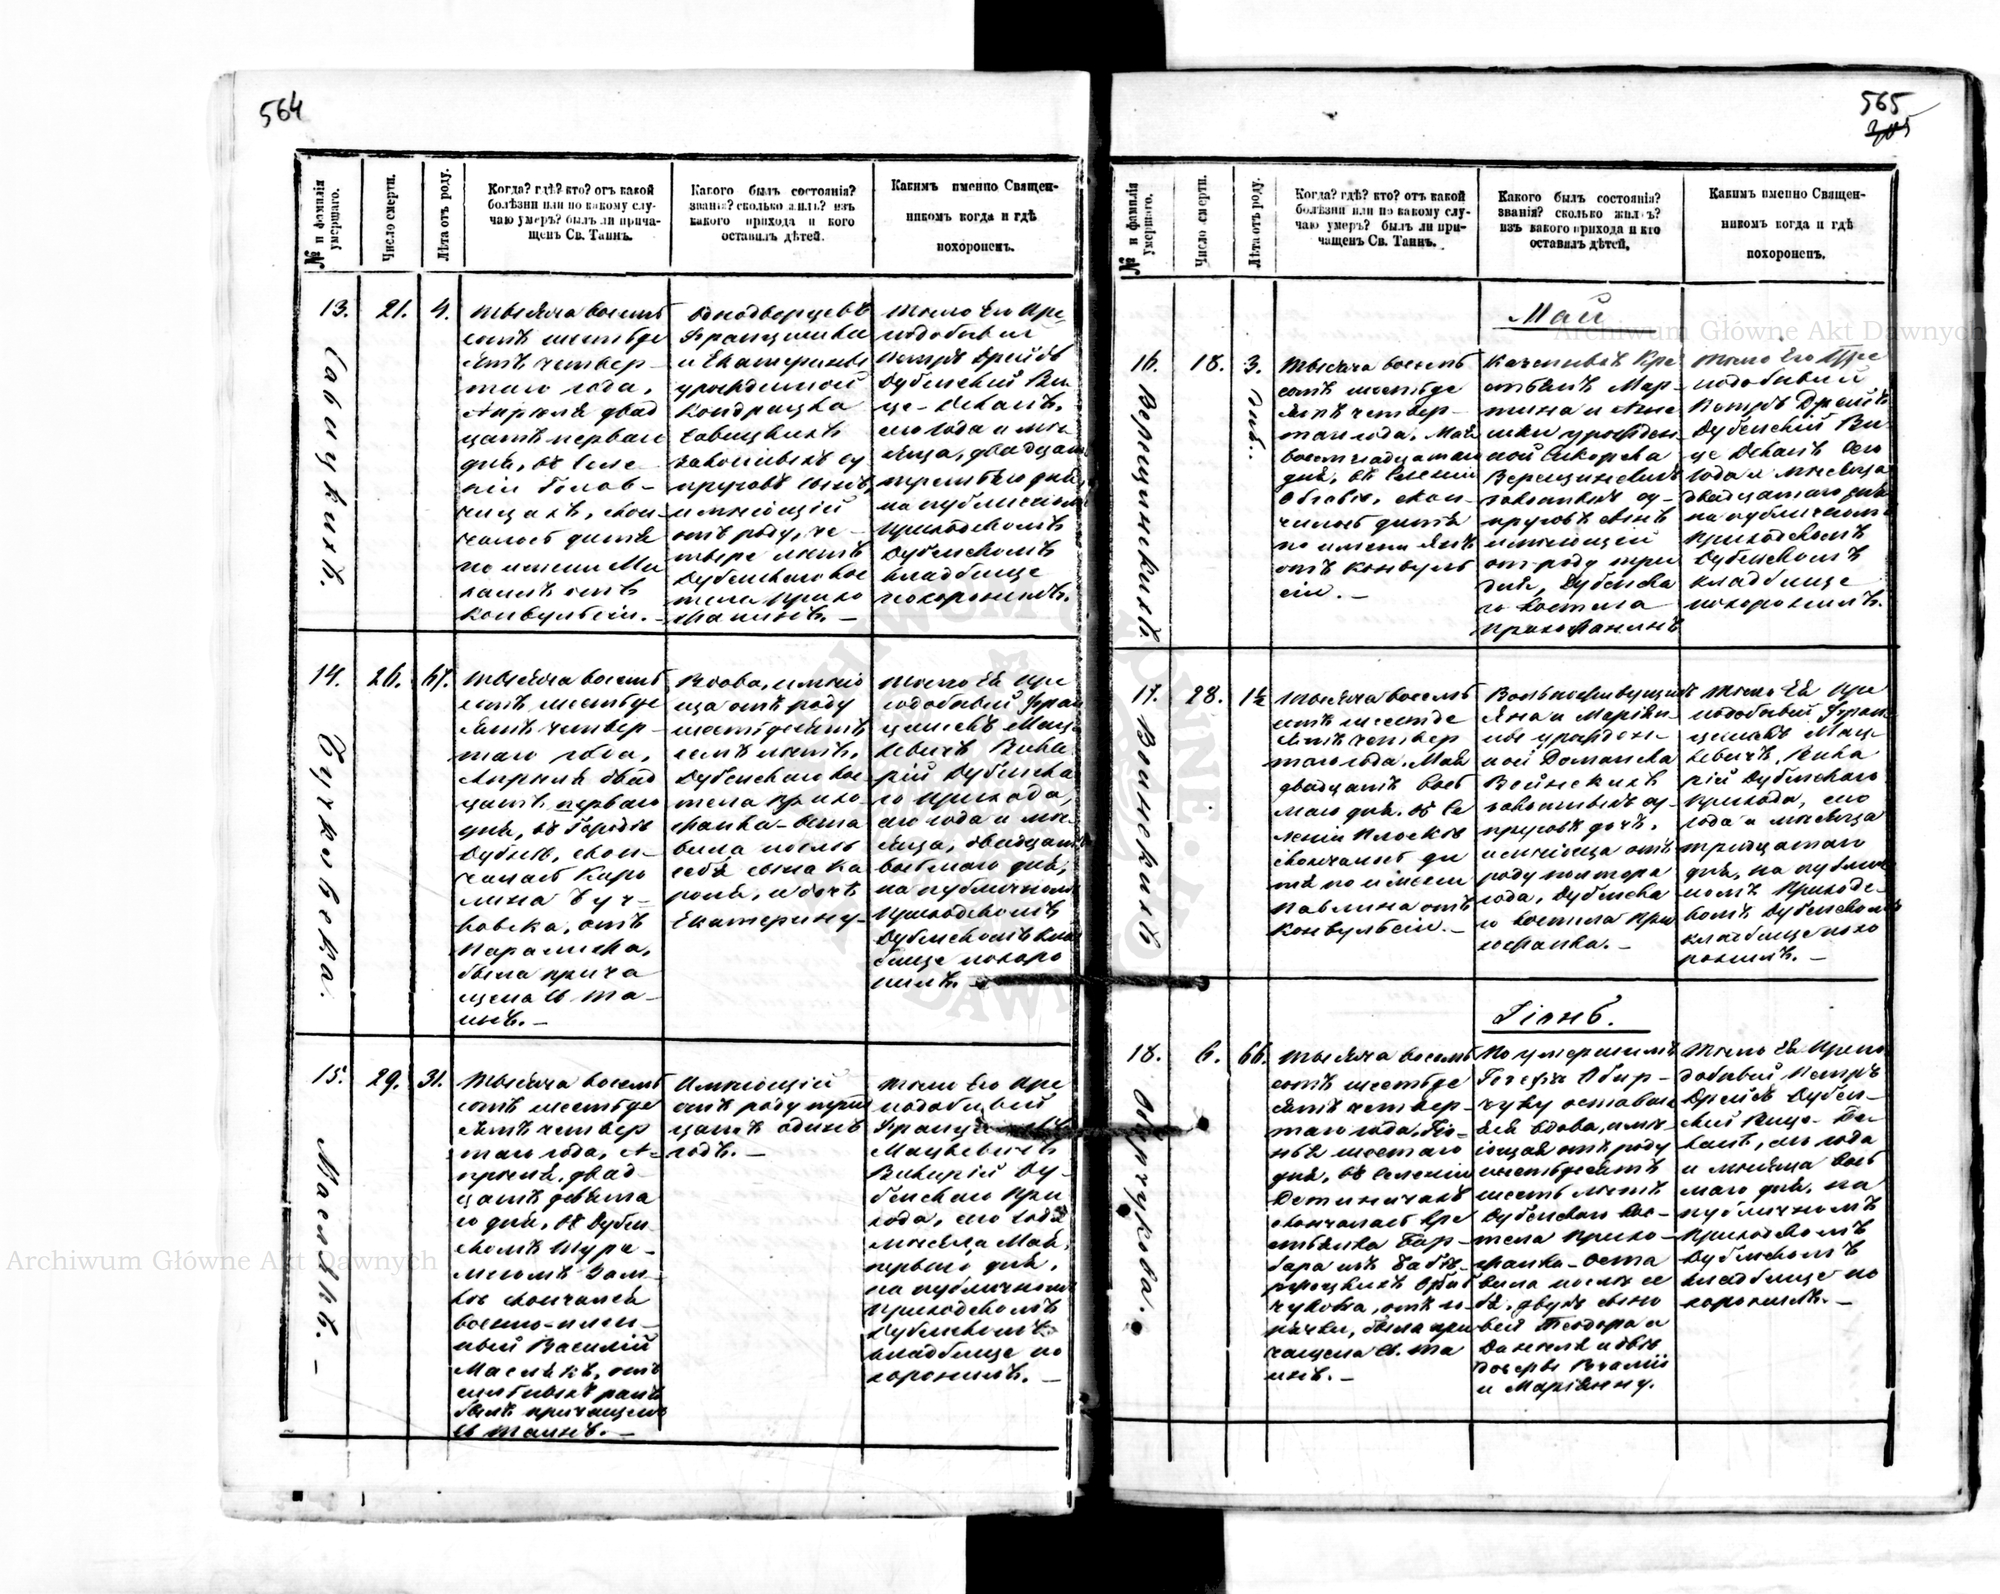 564
№ и фамилія умершаго.
Число смерти.
Лѣта отъ роду.
Когда? гдѣ? кто? отъ какой
болѣзни или по какому слу-
чаю умеръ? былъ ли прича-
щенъ Св. Таинъ.
Какого былъ состоянія?
званія? сколько жилъ? изъ
какого прихода и кого
оставилъ дѣтей.
Какимъ именно Священ-
никомъ когда и гдѣ
похороненъ.
13.
Савицкихъ.
21.
4.
Тысяча восемь
сотъ шестьде
сятъ четвер-
таго года,
Апрѣля двад
цать перваго
дня, въ Селе-
ніи Голов-
чицахъ, скон-
чалось дитя
по имени Ми
хаилъ отъ
конвульсіи.-
Однодворцевъ
Францишка
и Екатерины
урожденной
Кондрацка
Савицкихъ
законныхъ су
пруговъ сынъ,
имѣющій
отъ роду, че-
тыре лѣтъ
Дубенскаго кос
тела прихо
жанинъ.-
Тѣло Его Пре-
подобный
Петръ Дрейзъ
Дубенскій Ви-
це-Деканъ,
сего года и мѣ-
сяца, двадцать
третьяго дня
на публичномъ
Приходскомъ
Дубенскомъ
кладбище
похоронилъ.
14.
Бучковска.
26.
67.
Тысяча восемь
сотъ, шестьде
сятъ четвер-
таго года,
Апрѣля двад
цать перваго
дня, въ Городѣ
Дубнѣ, скон-
чалась Каро
лина Буч-
ковска, отъ
Паралижа,
была прича
щена Св. Та-
инъ.-
Вдова, имѣю
ща отъ роду
шестьдесятъ
семь лѣтъ,
Дубенскаго кос
тела прихо-
жанка-оста
вила послѣ
себя сына Ка
роля, и дочь
Екатерину-
Тѣло Ея Пре
подобный Фран
цишекъ Мац-
кевичъ Вика
рій Дубенска
го Прихода,
сего года и мѣ-
сяца, двадцать
восьмаго дня,
на публичномъ
Приходскомъ
Дубенскомъ клад
бище похоро
нилъ.-
15.
Маслякъ.-
29.
31.
Тысяча восемь
сотъ шестьде
сятъ четвер
таго года, А-
прѣля, двад-
цать девята
го дня, въ Дубен
скомъ Тюре-
мномъ Зам-
кѣ скончался
военно-плен-
ный Василій
Маслякъ, отъ
былъ причащенъ
Св Таинъ.-
Имѣющій
отъ роду трид
цать одинъ
годъ.-
Тѣло Его Пре
подобный
Мацкевичъ
Викарій Ду-
бенскаго При
хода, сего года
мѣсяца Мая,
перваго дня,
на публичномъ
Приходскомъ
Дубенскомъ
кладбище по
хоронилъ.-
565
№ и фамилія умершаго.
Число смерти.
Лѣта отъ роду.
Когда? гдѣ? кто? отъ какой
болѣзни или по какому слу-
чаю умеръ? былъ ли при-
чащенъ Св. Таинъ.
Какого былъ состоянія?
званія? сколько жилъ?
изъ какого прихода и кого
оставилъ дѣтей.
Какимъ именно Священ-
никомъ когда и гдѣ
похороненъ.
Май
16.
Верещинскихъ.
18.
3.
дни.
Тысяча восемь
сотъ шестьде
сятъ четвер-
таго года, Мая
восемнадцатаго
дня, въ Селеніи
скон-
чалось дитя
по имени Янъ
отъ конвуль
сіи.-
Казенныхъ Кре
стьянъ Мар-
тина и Агне
шки урожден-
ной Сикорска
Верещинскихъ
законныхъ су-
пруговъ сынъ
имѣющій
отъ роду три
дня, Дубенска
го костела
прихожанинъ
Тѣло Его Пре
подобный
Петръ Дрейзъ
Дубенскій Ви-
це Деканъ сего
года и мѣсяца
двадцатаго дня
на публичномъ
Приходскомъ
Дубенскомъ
кладбище
похоронилъ.
17.
Воинскихъ
28.
1½
Тысяча восемь
сотъ шестьде
сятъ четвер
таго года, Мая
двадцать вось
маго дня, въ Се
леніи Плоской
скончалось ди
тя по имени
Павлина отъ
конвульсіи.-
Вольноживущихъ
Яна и Маріян-
ны урожден-
ной Доманска
Воинскихъ
законныхъ су-
пруговъ дочь,
имѣюща отъ
роду полтора
года, Дубенска
го костела при
хожанка.-
Тѣло Ея Пре
подобный Фран-
цишекъ Мац-
кевичъ, Вика
рій Дубенскаго
Прихода, сего
года и мѣсяца
тридцатаго
дня, на публич
номъ Приходс-
комъ Дубенскомъ
кладбище похо
ронилъ.-
Іюнь.
18.
Обирчукова.
6.
66.
Тысяча восемь
сотъ шестьде
сятъ четвер-
таго года, Ію-
ня шестаго
дня, въ Селеніи
скончалась кре
стьянка Бар-
бара изъ
была при
чащена Св. Та
инъ.-
По умершимъ
Обир-
чуку оставша
яся вдова, имѣ-
ющая отъ роду
шестьдесятъ
шесть лѣтъ
Дубенскаго кос-
тела прихо-
жанка-оста
вила послѣ се
бя, двухъ сыно
вей Теодора и
Даніеля и двѣ
дочеры
и Маріянну.
Тѣло Ея Препо
добный Петръ
Дрейзъ Дубен-
скій Вице-Де-
канъ, сего года
и мѣсяца вось
маго дня, на
публичномъ
Приходскомъ
Дубенскомъ
кладбище по
хоронилъ.-
Archiwum Główne Akt Dawnych
Archiwum Główne Akt Dawnych